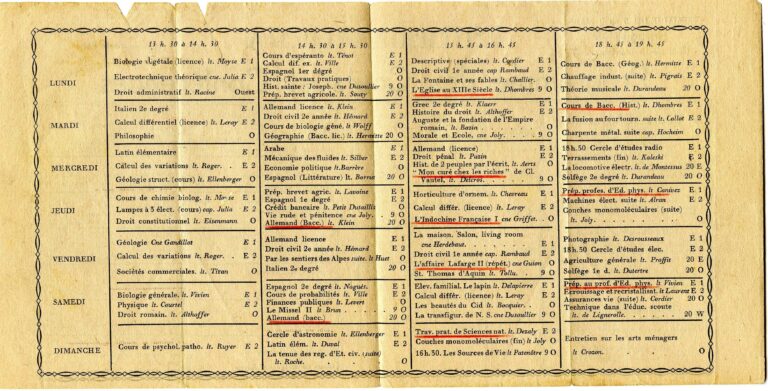 13 h. 30 à 14 h. 30
14 h. 30 à 15 h. 30
15 h. 45 à 16 h. 45
18 h. 45 à 19 h. 45
LUNDI
Biologie végétale (licence) lt. Moyse E 1
Electrotechnique théorique cne. Julia E 2
Droit administratif lt. Racine Ouest
Cours d'espéranto lt. Ténot E 1
Calcul dif. ex. lt. Ville E 2
Espagnol 1er dégré O
Droit (Travaux pratiques) O
Hist. sainte : Joseph. cne Dusoullier 9 O
Prép. brevet agricole. lt. Souty 20 O
Descriptive (spéciales) lt. Cordier E 1
Droit civil 1e année cap Rambaud E 2
La Fontaine et ses fables lt. Challier. O
L'Eglise au XIIIe Siècle lt. Dhombres 9 O
Cours de Bacc. (Géog.) lt. Hermitte E 1
Chauffage indust. (suite) lt. Pigeais E 2
Théorie musicale lt. Durandeau 20 O
MARDI
Italien 2e degré E 1
Calcul différentiel (licence) lt. Leray E 2
Philosophie O
Allemand licence lt. Klein E 1
Droit civil 2e année lt. Hémard E 2
Cours de biologie géné. lt Wolff O
Géographie (Bacc. lic.) lt. Hermitte 20 O
Grec 2e degré lt. Klaerr E 1
Histoire du droit lt. Althoffer E 2
Auguste et la fondation de l'Empire
romain. lt. Bazin O
Morale et Ecole, cne Joly. 9 O
Cours de Bacc. (Hist.) lt. Dhombres E 1
La fusion au four tourn. suite lt. Collot E 2
Charpente métal. suite cap. Hocheim O
MERCREDI
Latin élémentaire E 1
Calcul des variations lt. Roger E 2
Géologie struct. (cours) lt. Ellenberger O
Arabe E 1
Mécanique des fluides lt. Silber E 2
Economie politique lt. Barrère O
Espagnol (Littérature) lt. 20 O
Allemand (licence) E 1
Droit pénal lt. Patin E 2
Hist. de 2 peuples par l'écrit. lt. Aerts O
" Mon curé chez les riches " de Cl.
Vautel, lt. 9 O
18 h. 50 Cercle d'études radio E 1
Terrassements (fin) lt. Kaleski E 2
La locomotive électr. lt de O
Solfège 2e degré lt Durandeau. 20 O
JEUDI
Cours de chimie biolog. lt. E 1
Lampes à 5 élect. (cours) cap. Julia E 2
Droit constitutionnel lt. Eisenmann O
Prép. brevet agric. lt. Lavoine E 1
Espagnol 1e degré E 2
Crédit bancaire lt. Petit Dutaillis O
Vie rude et pénitence cne Joly. 9 O
Allemand (Bacc.) lt. Klein 20 O
Horticulture d'ornem. lt. Chesreau E 1
Calcul différ. (licence) lt. Leray E 2
L'Indochine Française I cne Griffet. O
Prép. profes. d'Ed. phys. lt Canivez E 1
Machines élect. suite lt. Alran E 2
Couches monomoléculaires (suite)
lt. Joly. O
VENDREDI
Géologie Cne Gandillot E 1
Calcul des variations lt. Roger. E 2
Sociétés commerciales. lt. Titran O
Allemand licence E 1
Droit civil 2e année lt. Hémard E 2
Par les sentiers des Alpes suite lt. Huet O
Italien 2e degré 20 O
La maison. Salon, living room
cne Herdebaut. E 1
Droit civil 1e année cap. Rambaud E 2
L'affaire Lafarge II (répét.) cne Guion O
St. Thomas d'Aquin lt. Tolla. 9 O
Photographie lt. Desrousseaux E 1
18 h. 50 Cercle d'études élec. E 2
Agriculture générale lt. Proffit 25 O
Solfège 1e d. lt. Dutertre 20 O
SAMEDI
Biologie générale. lt. Vivien E 1
Physique lt. Coursel E 2
Droit romain. lt. Althoffer O
Espagnol 2e degré lt. Noguès. E 1
Cours de probabilités lt. Ville E 2
Finances publiques lt. Levert O
Le Missel II lt Brun 9 O
Allemand (bacc.) 20 O
Elev. familial. Le lapin lt. Delapierre E 1
Calcul différ. (licence) lt. Leray E 2
Les beautés du Cid lt. Becquart. O
La transfigur. de N. S. cne Dusoullier 9 O
Prép. au prof. d'Ed. phys. lt Vivien E 1
Ecrouissage et recristallisat. lt Laurent E 2
Assurances vie (suite) lt. Cordier O
Technique dans l'éduc. scoute
lt. de Lignerolle. 20 W
DIMANCHE
Cours de psychol. patho. lt. Ruyer E 2
Cercle d'astronomie lt. Ellenberger E 1
Latin élém. lt. Duval E 2
La tenue des reg. d'Et. civ. (suite)
lt. Roche. O
Trav. prat. de Sciences nat. lt. Dezoly E 2
Couches monomoléculaires (fin) lt Joly O
16 h. 50. Les Sources de Vie lt Patenôtre 9 O
Entretien sur les arts ménagers
lt Crozon. O